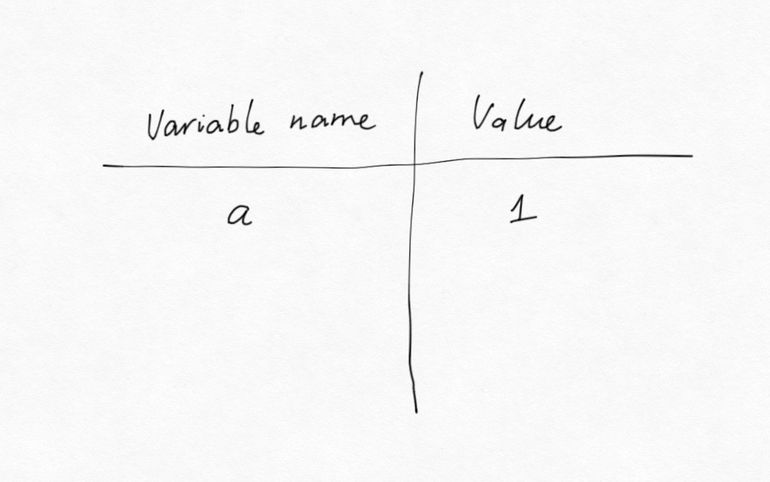 Variable name Value
a 1